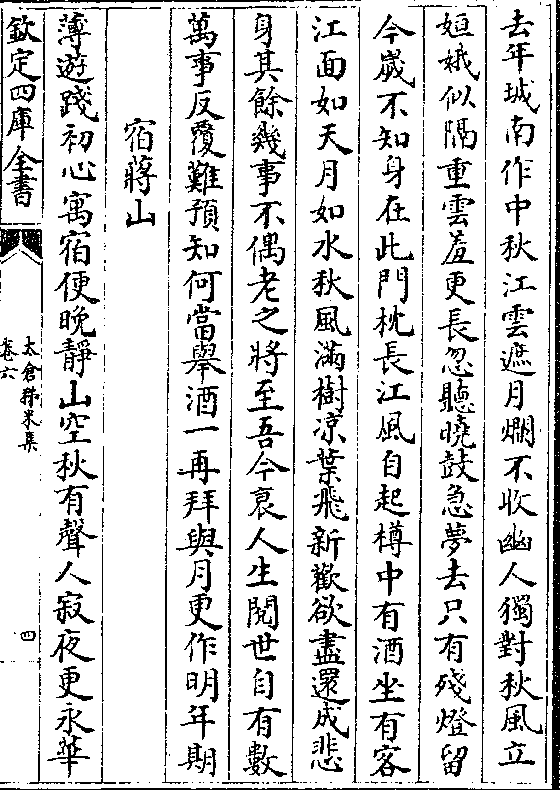 去年城南作中秋江雲遮月爛不收幽人獨對秋風立
姮娥似隔重雲羞更長忽聽曉鼓急夢去只有殘燈留
今歲不知身在此門枕長江風自起樽中有酒坐有客
江面如天月如水秋風滿樹凉葉飛新歡欲盡還成悲
身其餘幾事不偶老之將至吾今衰人生閱世自有數
萬事反覆難預知何當舉酒一再拜與月更作明年期
宿蔣山
薄遊踐初心寓宿便晚靜山空秋有聲人寂夜更永華
欽定四庫全書
太倉稊米集
卷六
四